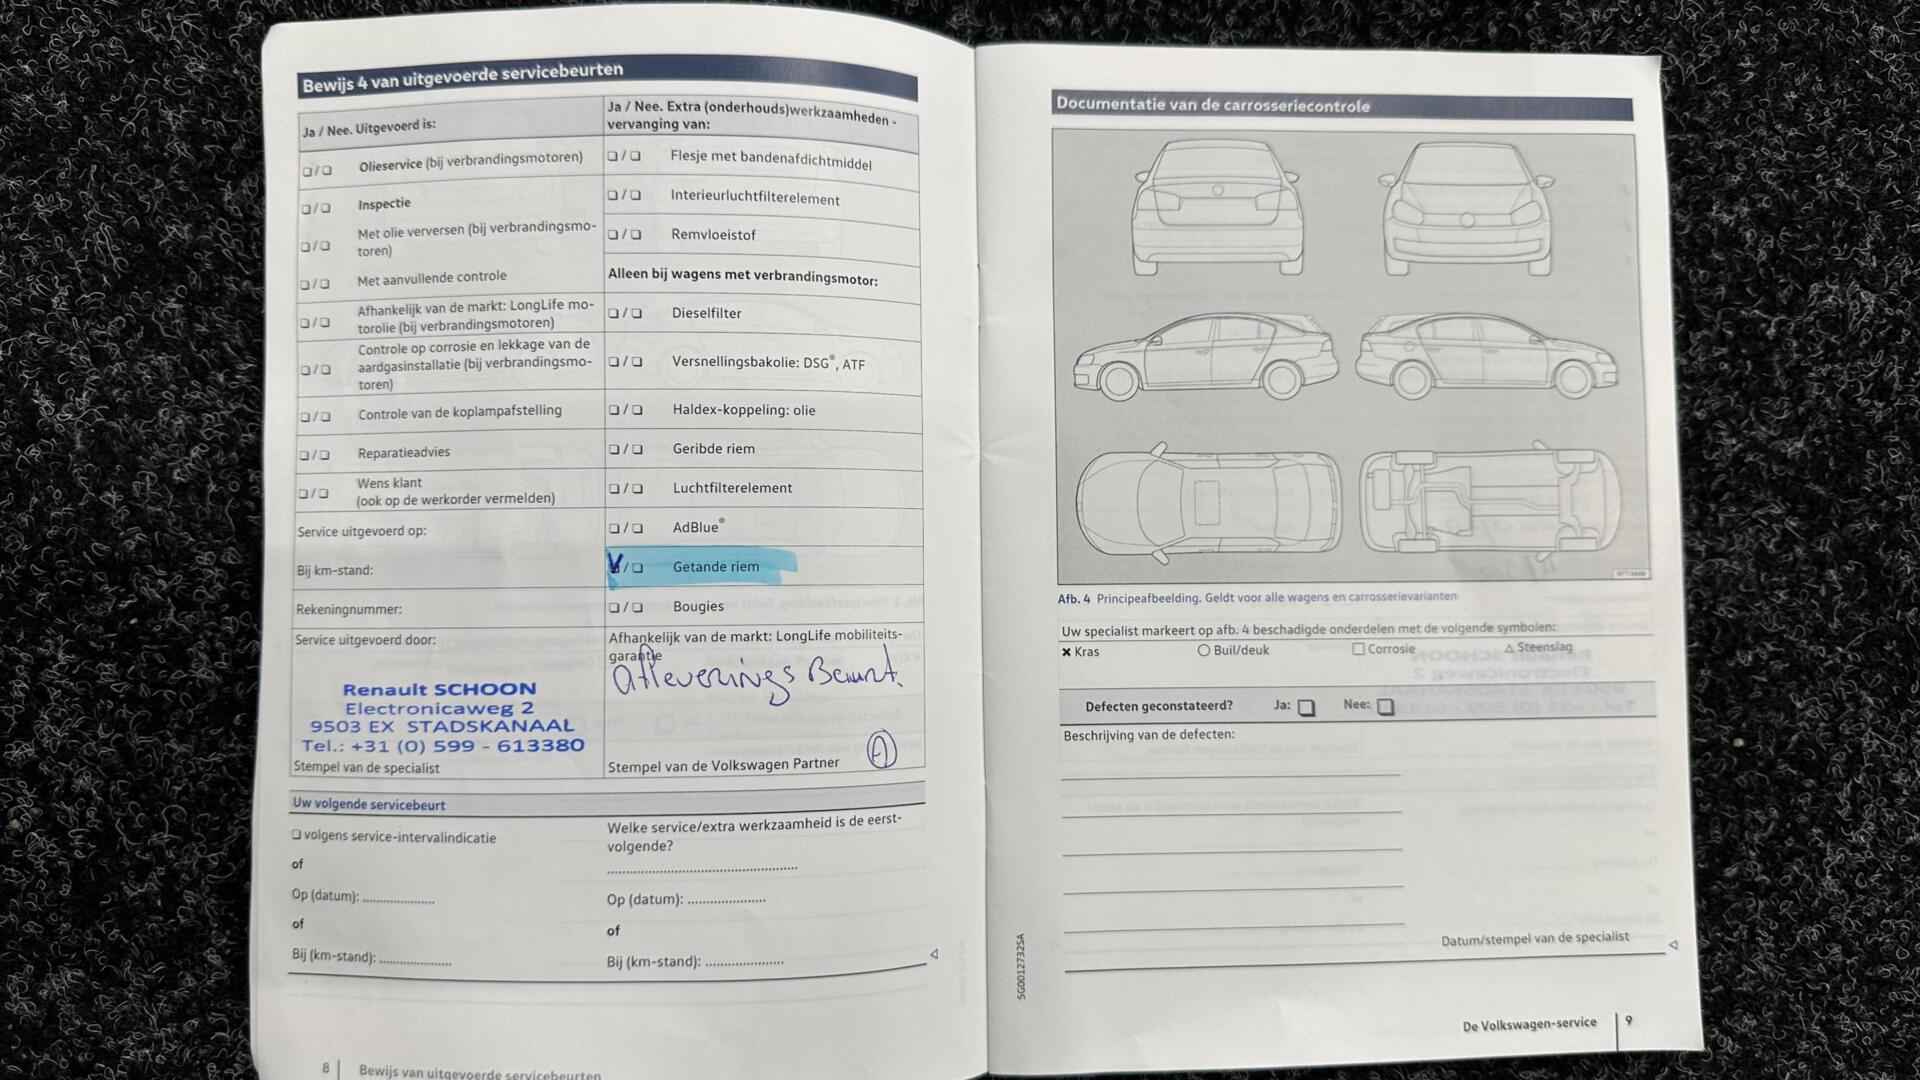 Bewijs 4 van uitgevoerde servicebeurten
Ja / Nee. Uitgevoerd is:
❏ / ❏ Olieservice (bij verbrandingsmotoren)
❏ / ❏ Inspectie
❏ / ❏ Met olie verversen (bij verbrandingsmo-
toren)
❏ / ❏ Met aanvullende controle
❏ / ❏ Afhankelijk van de markt: LongLife mo-
torolie (bij verbrandingsmotoren)
❏ / ❏ Controle op corrosie en lekkage van de
aardgasinstallatie (bij verbrandingsmo-
toren)
❏ / ❏ Controle van de koplampafstelling
❏ / ❏ Reparatieadvies
❏ / ❏ Wens klant
(ook op de werkorder vermelden)
Service uitgevoerd op:
Bij km-stand:
Rekeningnummer:
Service uitgevoerd door:
Renault SCHOON
Electronicaweg 2
9503 EX STADSKANAAL
Tel.: +31 (0) 599 - 613380
Stempel van de specialist
Ja / Nee. Extra (onderhouds)werkzaamheden -
vervanging van:
❏ / ❏ Flesje met bandenafdichtmiddel
❏ / ❏ Interieurluchtfilterelement
❏ / ❏ Remvloeistof
Alleen bij wagens met verbrandingsmotor:
❏ / ❏ Dieselfilter
❏ / ❏ Versnellingsbakolie: DSG®, ATF
❏ / ❏ Haldex-koppeling: olie
❏ / ❏ Geribde riem
❏ / ❏ Luchtfilterelement
❏ / ❏ AdBlue®
V / ❏ Getande riem
❏ / ❏ Bougies
Afhankelijk van de markt: LongLife mobiliteits-
garantie
Afleverings Beurt.
A
Stempel van de Volkswagen Partner
Uw volgende servicebeurt
❏ volgens service-intervalindicatie
of
Op (datum): ....................
of
Bij (km-stand): ....................
Welke service/extra werkzaamheid is de eerst-
volgende?
..................................................
Op (datum): ....................
of
Bij (km-stand): ....................
8 | Bewijs van uitgevoerde servicebeurten
Documentatie van de carrosseriecontrole
Afb. 4 Principeafbeelding. Geldt voor alle wagens en carrosserievarianten
Uw specialist markeert op afb. 4 beschadigde onderdelen met de volgende symbolen:
× Kras ○ Buil/deuk □ Corrosie △ Steenslag
Defecten geconstateerd? Ja: ❏ Nee: ❏
Beschrijving van de defecten:
Datum/stempel van de specialist
5G0012732SA
De Volkswagen-service | 9